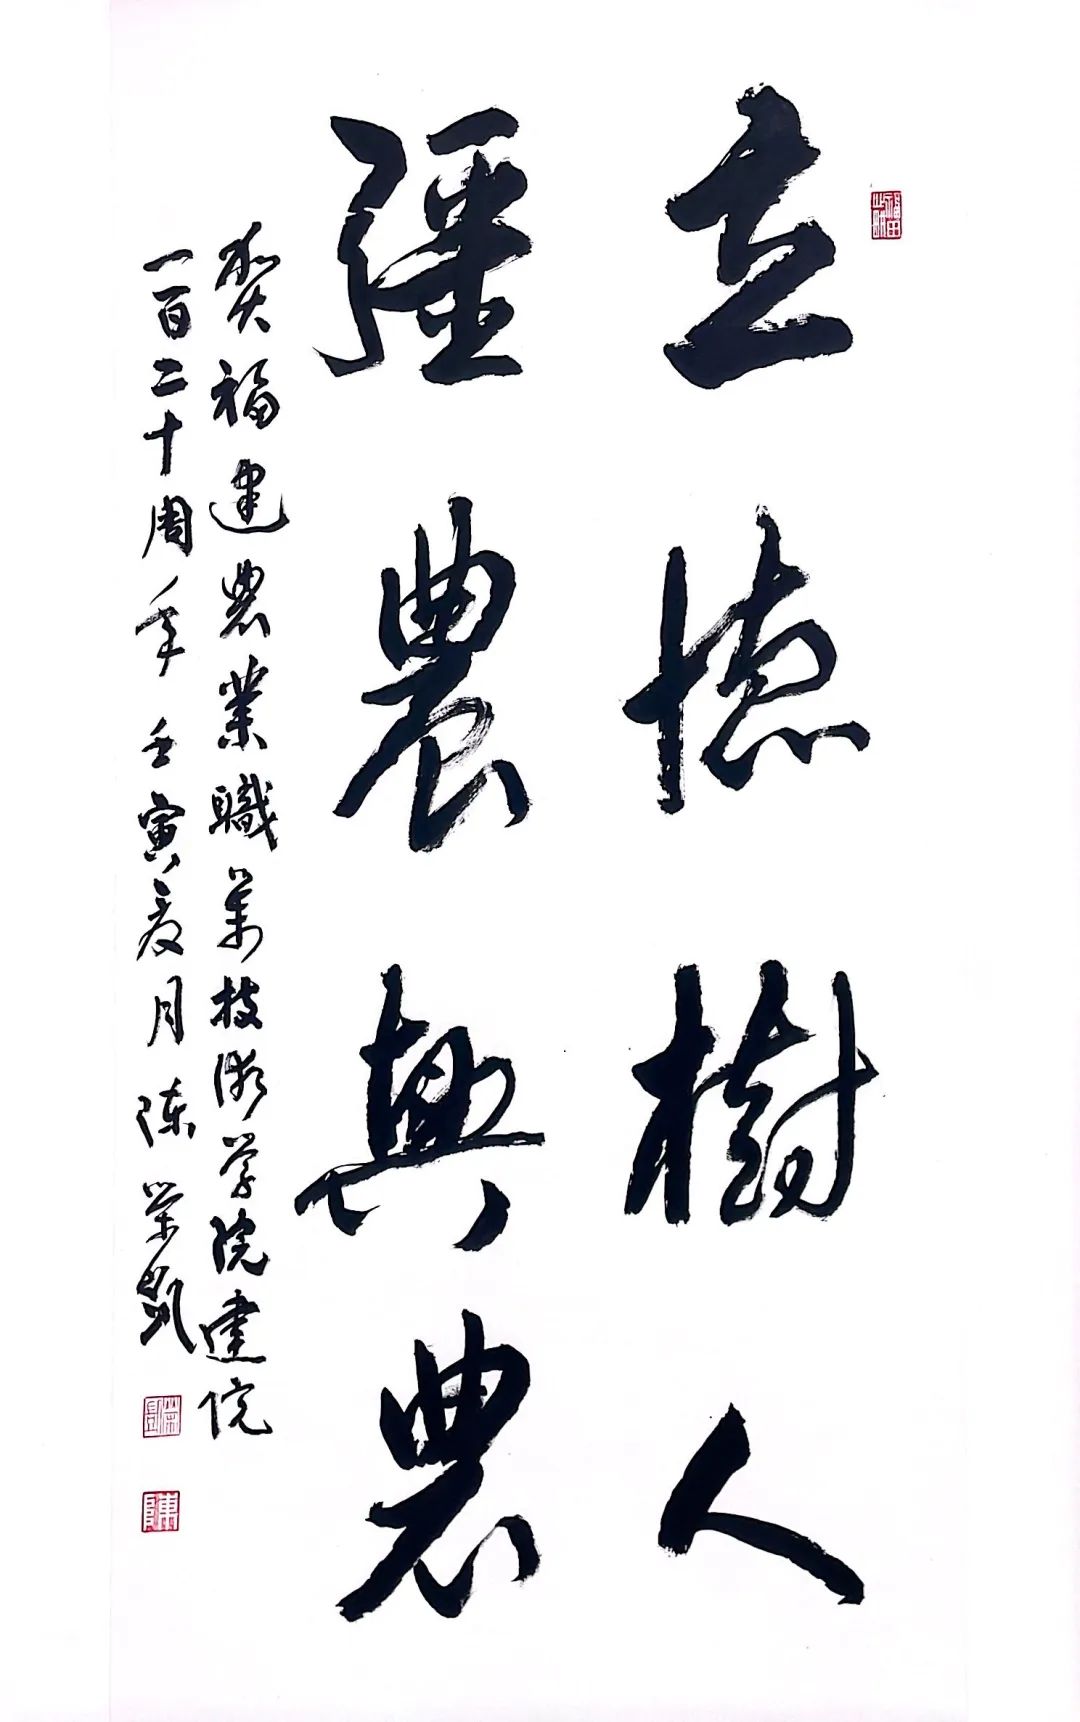 立德樹人
彊農興農
贺福建農業職業技術学院建院
一百二十周年壬寅夏月陈荣凱